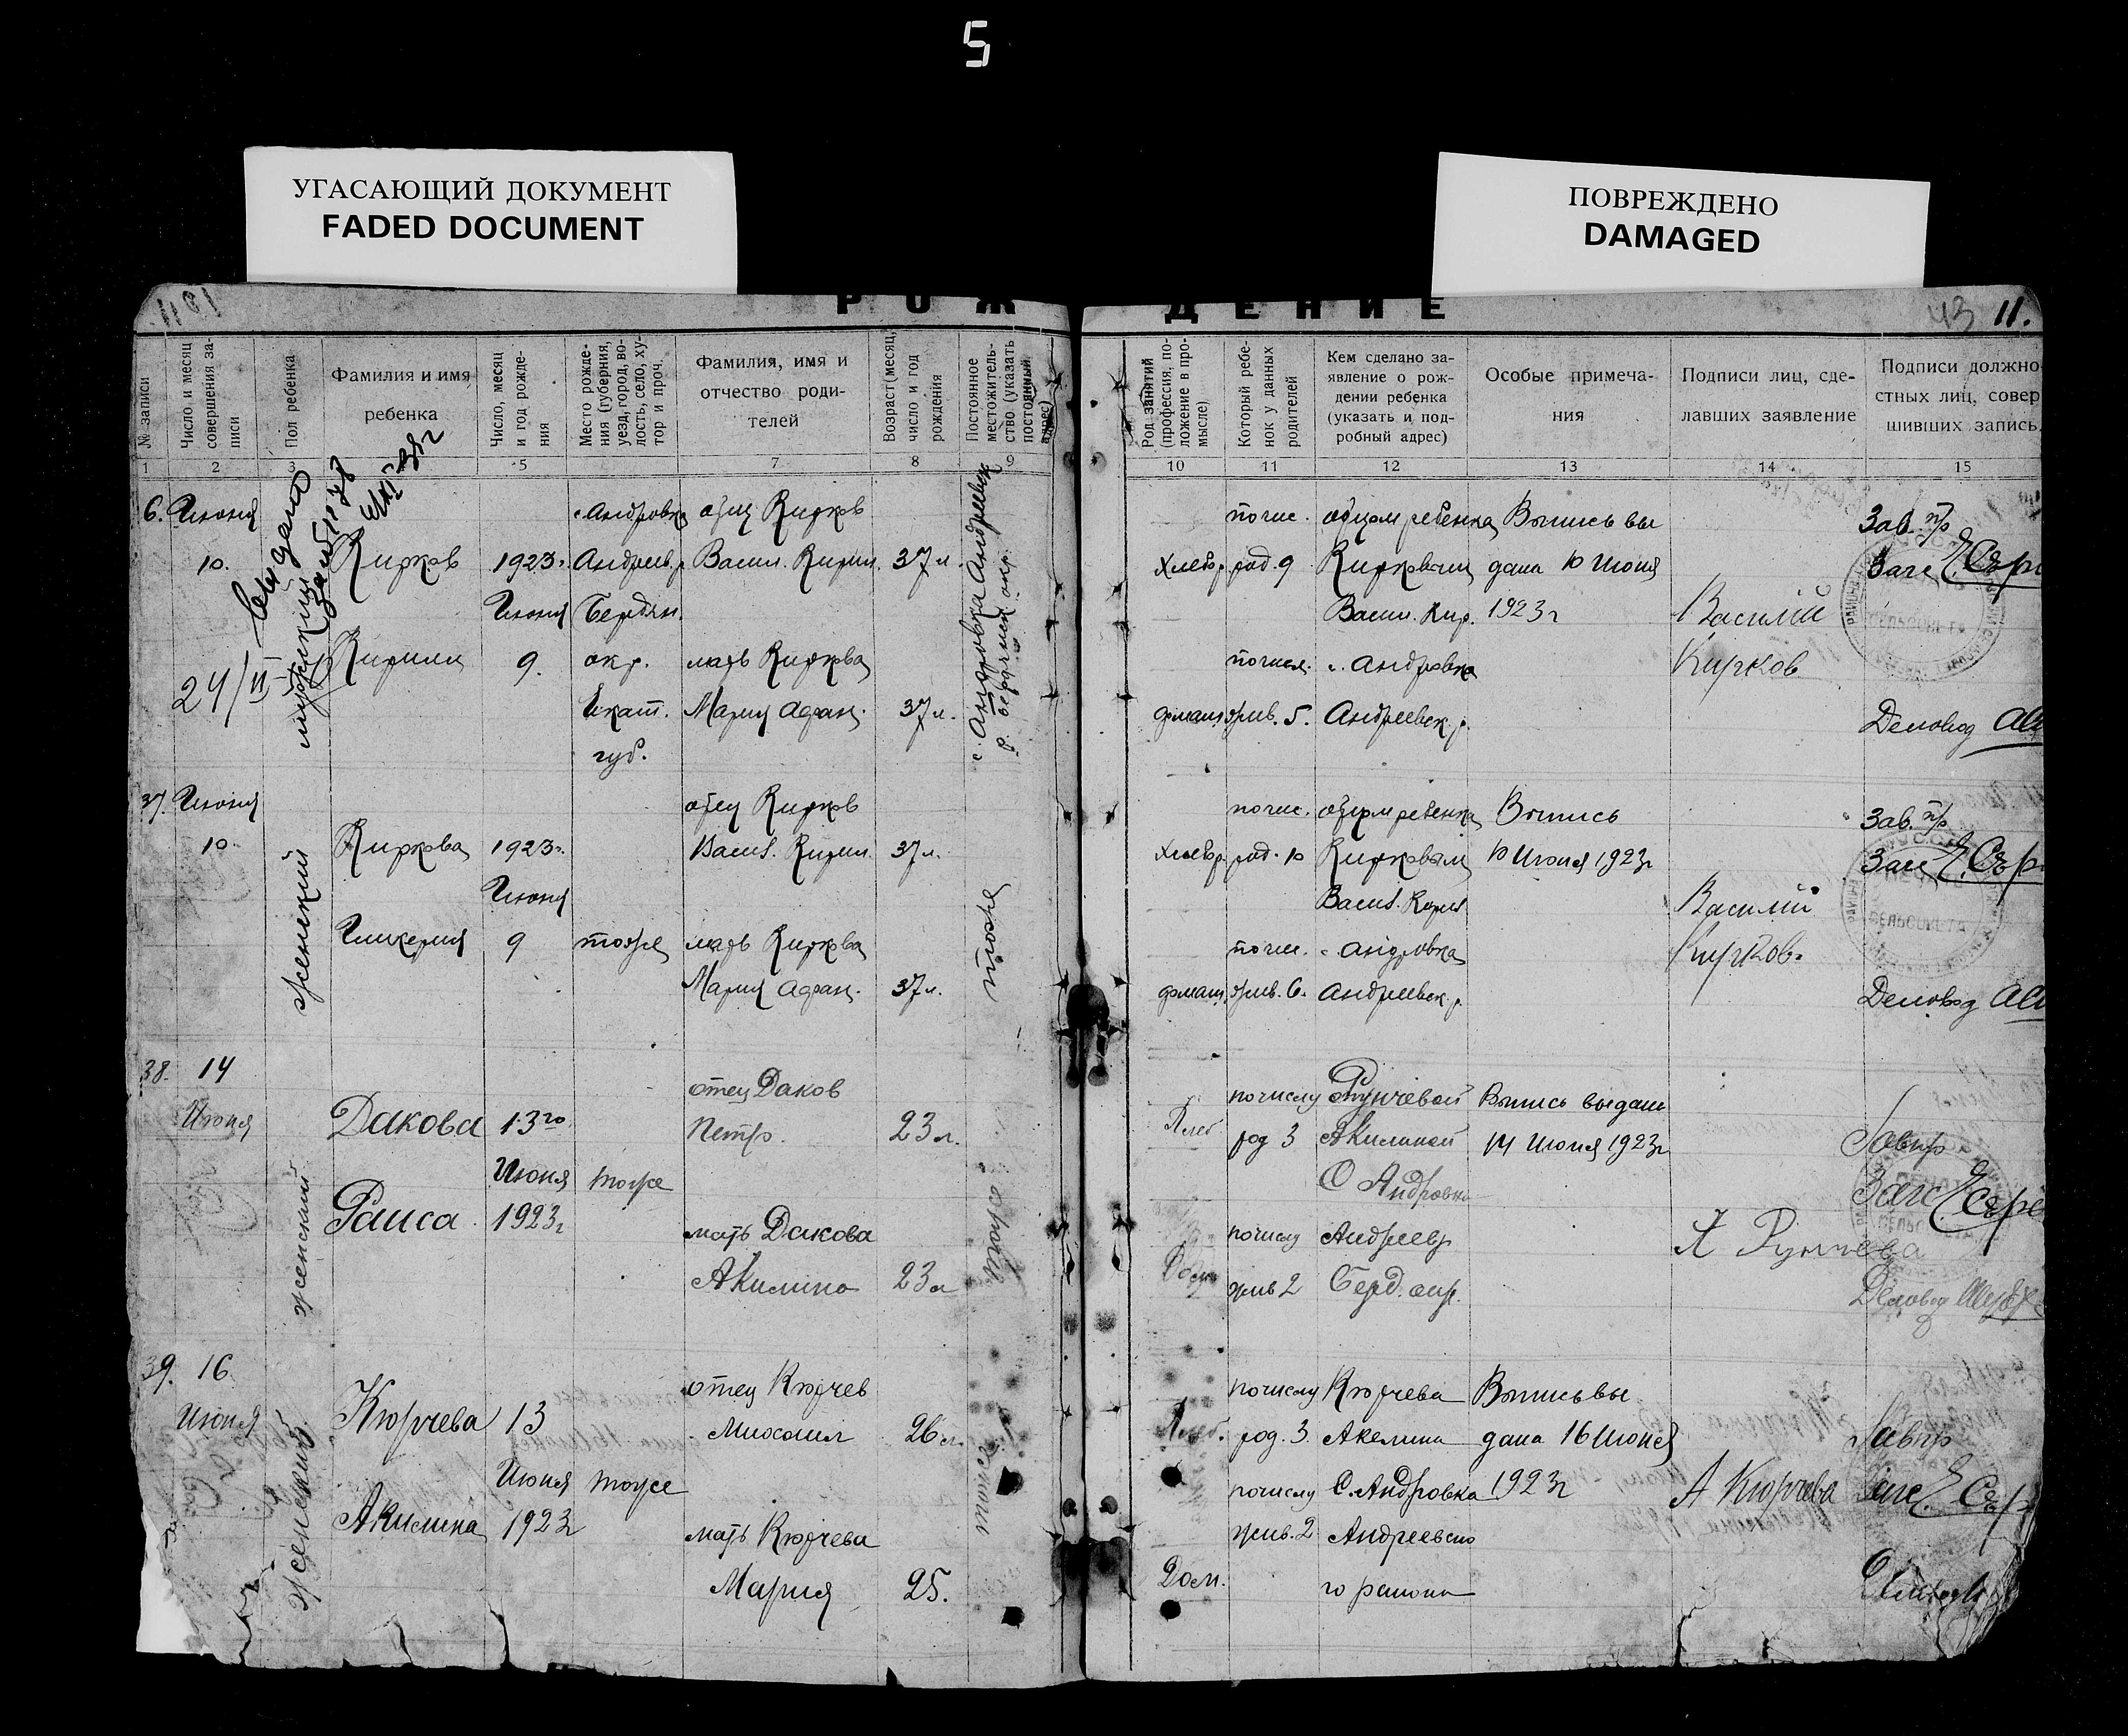 5
УГАСАЮЩИЙ ДОКУМЕНТ
FADED DOCUMENT
ПОВРЕЖДЕНО
DAMAGED
РОЖДЕНИЕ
43 11.
№ записи
Число и месяц совершения записи
Пол ребенка
Фамилия и имя
ребенка
Число, месяц и год рождения
Место рождения (губерния, уезд, город, волость, село, хутор и проч.
Фамилия, имя и
отчество роди-
телей
Возраст (месяц, число и год рождения
Постоянное местожительство (указать постоянный адрес)
Род занятий (профессия, положение в промысле)
Который ребенок у данных родителей
Кем сделано за-
явление о рож-
дении ребенка
(указать и под-
робный адрес)
Особые примеча-
ния
Подписи лиц, сде-
лавших заявление
Подписи должно
стных лиц, совер
шивших запись.
1 2 3 5 7 8 9 10 11 12 13 14 15
6. Июня
10.
24/II
выдано
мужский
Кирков
Кирилл
1923г.
Июня
9.
с. Андровка
Андреев. р.
Бердян.
окр.
Екат.
губ.
отец Кирков
Васил. Кирил. 37 л.
мать Киркова
Мария Афан. 37 л.
с. Андровка Андреевск
р. Бердянск. окр.
Хлебор.
домаш.
по чис.
род. 9
по числ.
жив. 5.
отцом ребенка
Кирковым
Васил. Кир.
с. Андровка
Андреевск. р.
Выпись вы
дана 10 Июня
1923г
Василий
Кирков
Зав. п/р
Загс
Деловод
37. Июня
10.
женский
Киркова
Гликерия
1923г.
Июня
9
тоже
отец Кирков
Васил. Кирил. 37 л.
мать Киркова
Мария Афан. 37 л.
тоже
Хлебор.
домаш.
по чис.
род. 10
по чис.
жив. 6.
отцом ребенка
Кирковым
Васил. Кирил
с. Андровка
Андреевск. р.
Выпись
10 Июня 1923г
Василий
Кирков.
Зав. п/р
Загс
Деловод
38. 14
Июня
женский
Дакова
Раиса
13го
Июня
1923г
тоже
отец Даков
Петр. 23 л.
мать Дакова
Акилина 23 л
тоже
Хлеб
по числу
род 3
по числу
жив 2
Рунчевой
Акилиной
С Андровка
Андреевр
Берд. окр.
Выпись выдана
14 Июня 1923г
А Рунчева
Завпр
Загс
Деловод
39. 16
Июня
женский
Кюрчева
Акилина
13
Июня
1923г
тоже
отец Кюрчев
Михаил 26 л.
мать Кюрчева
Мария 25.
тоже
Хлеб.
Дом.
по числу
род. 3.
по числу
жив. 2
Кюрчева
Акелина
С. Андровка
Андреевско
го района
Выпись вы
дана 16 Июня
1923г
А Кюрчева
Завпр
Загс